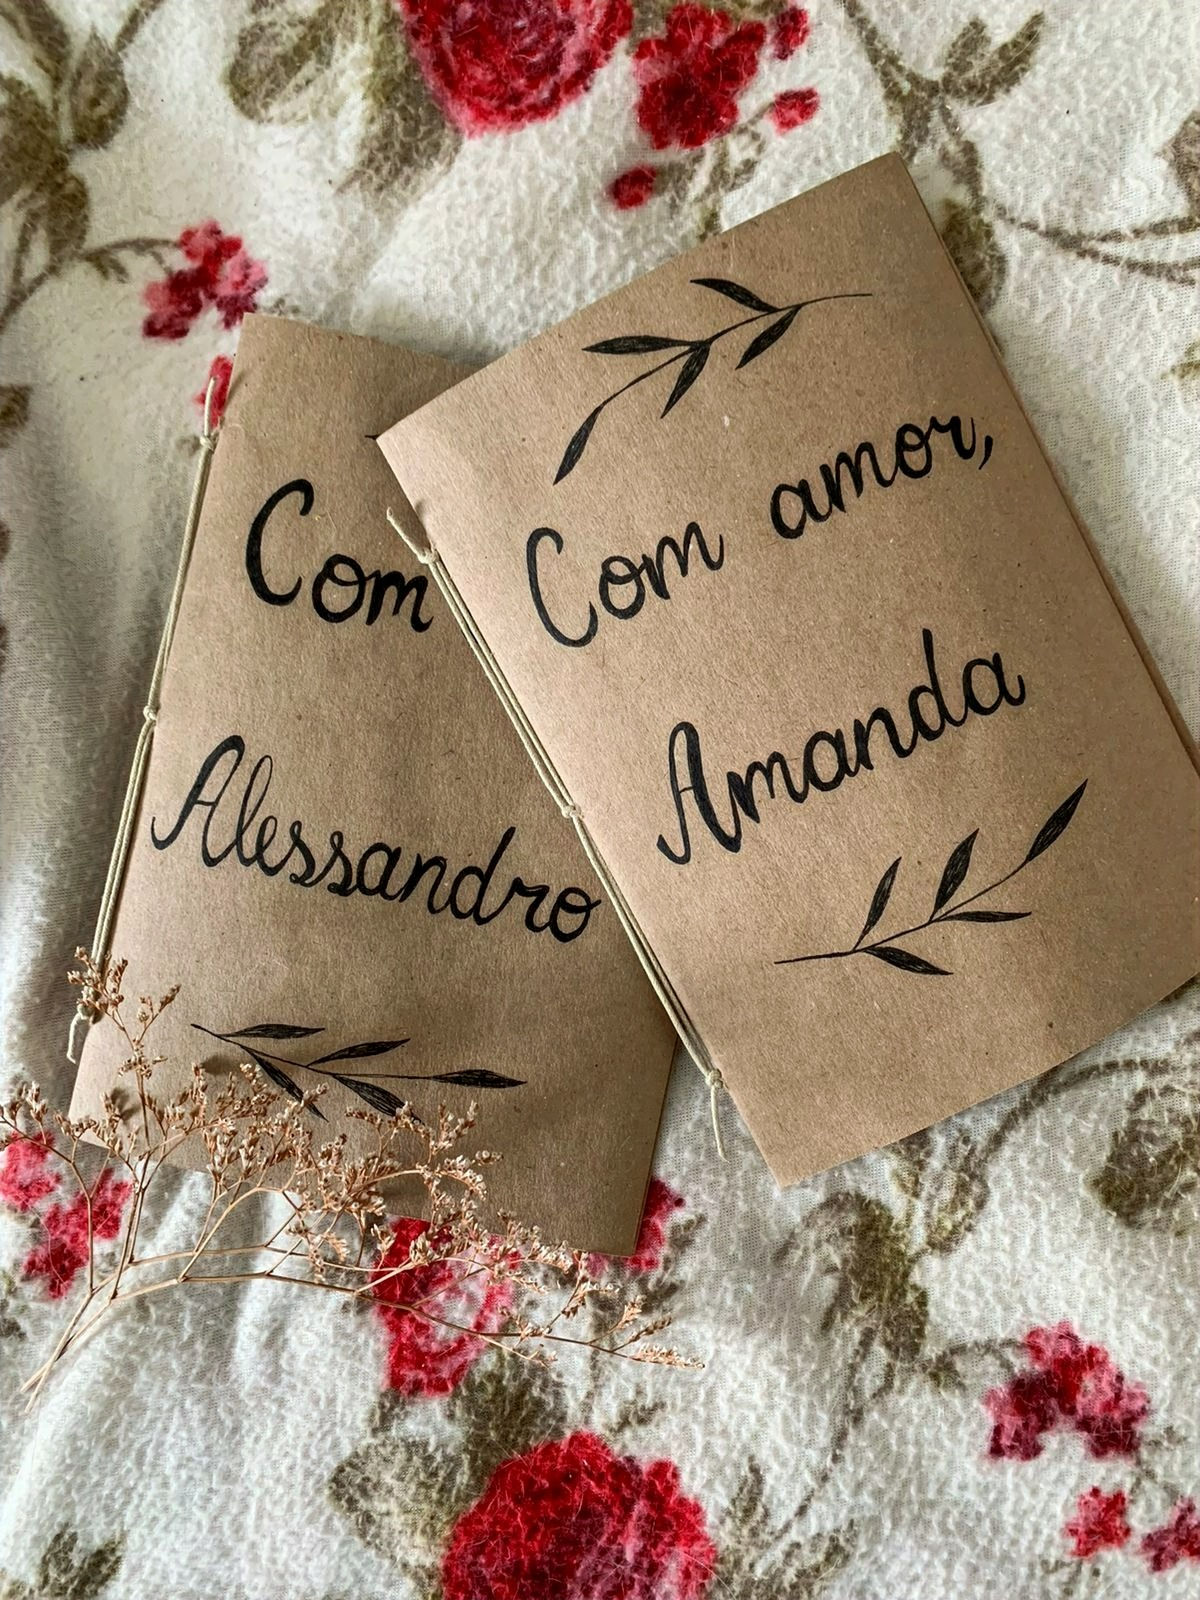 Com
Alessandro
Com amor,
Amanda